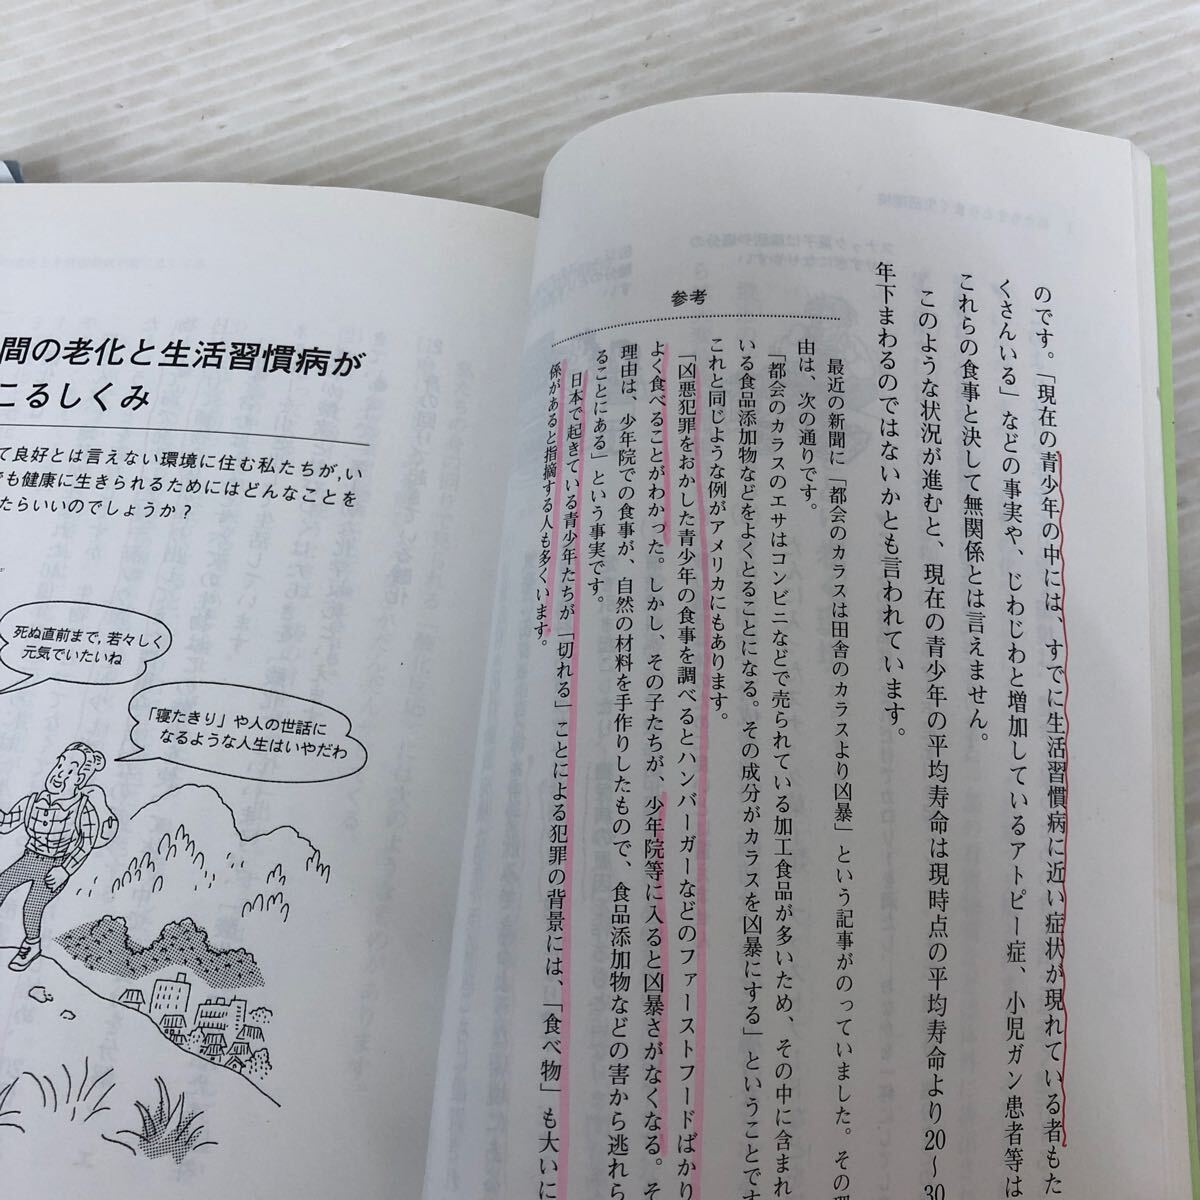 のです。「現在の青少年の中には、すでに生活習慣病に近い症状が現れている者もた
くさんいる」などの事実や、じわじわと増加しているアトピー症、小児ガン患者等は
これらの食事と決して無関係とは言えません。
このような状況が進むと、現在の青少年の平均寿命は現時点の平均寿命より20～30
年下まわるのではないかとも言われています。
参考
最近の新聞に「都会のカラスは田舎のカラスより凶暴」という記事がのっていました。その理
由は、次の通りです。
「都会のカラスのエサはコンビニなどで売られている加工食品が多いため、その中に含まれ
いる食品添加物などをよくとることになる。その成分がカラスを凶暴にする」ということです
これと同じような例がアメリカにもあります。
「凶悪犯罪をおかした青少年の食事を調べるとハンバーガーなどのファーストフードばかり
よく食べることがわかった。しかし、その子たちが、少年院等に入ると凶暴さがなくなる。そ
理由は、少年院での食事が、自然の材料を手作りしたもので、食品添加物などの害から逃れら
ることにある」という事実です。
日本で起きている青少年たちが「切れる」ことによる犯罪の背景には、「食べ物」も大いに
係があると指摘する人も多くいます。
間の老化と生活習慣病が
こるしくみ
て良好とは言えない環境に住む私たちが,い
でも健康に生きられるためにはどんなことを
たらいいのでしょうか？
死ぬ直前まで,若々しく
元気でいたいね
「寝たきり」や人の世話に
なるような人生はいやだわ